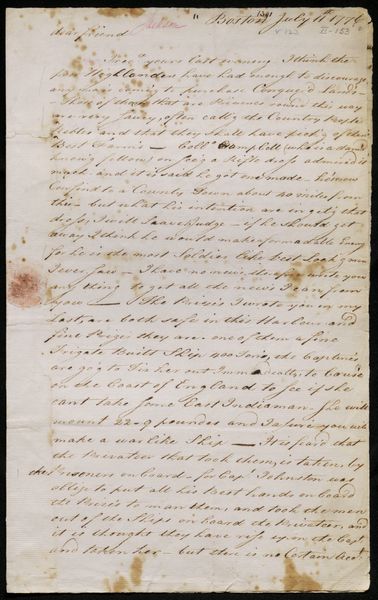 Boston July 11th 1776
dear friend Jackson
v 122 II-153
Rec'd yours last evening. I think the
poor Highlanders have had enough to discourage
any more coming to purchase Conquer'd Lands
Those of them that are Prisoners round this way
are very saucy, often calling the Country People
Rebbles and that they shall have pick'g of their
Best Farms — Coll Camp bell (who is a damn'd
knowing fellow) on seeing a Rifle dress admired it
much - and it is said he got one made - he is now
Confin'd to a Country Town about 20 miles from
this - but what his intention are in getg that
dress, I will leave you to Judge - if he should get
away I think he would make a formadable Enemy
for he is the most Soldier like best Look'g man
I ever saw - I have no news therefore write you
any thing to get all the news I can from
you — The Prizes I wrote you in my
Last, are both safe in this Harbour, and
fine Prizes they are - one of them a fine
Frigate Built Ship 400 Tons, the Captors
are go'g to Fix her out Immediatly, to Cruise
on the Coast of England to see if she
can't take some East Indiaman. She will
mount 22-9 pounders and I assure you will
make a war like Ship — It is fear'd that
the Privateer that took them, is taken, by
the Prisoners on board - for Cap't Johnston was
oblig'd to put all his best hands on board
the Prizes to man them, and took the men
out of the Ships on board the Privateer, and
it is thought they have rose up on the Cap't
and taken her - but there is no Certain Acct